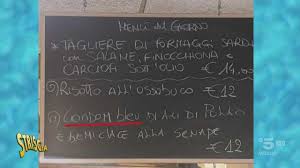 MENÙ del GIORNO
* TAGLIERE DI FORMAGGI SARDI
con SALAME, FINOCCHIONA e
CARCIOFI SOTT'OLIO €14,00
RISOTTO ALL'OSSOBUCO €12
CONDOM bleu DI ALI DI POLLO
ALLA SENAPE €12
STRISCIA
5